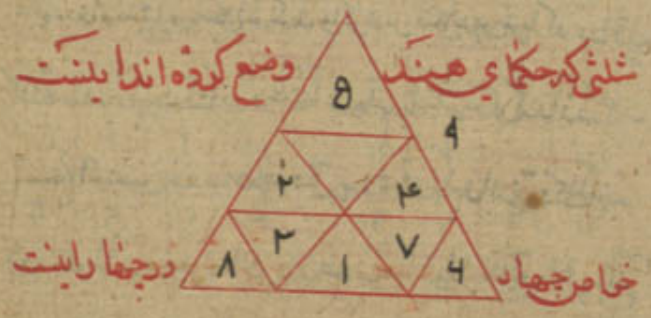 مثلثی که حکمای هند وضع کرده اند اینست
۵
۹
۴ ۲
۸ ۳ ۱ ۷ ۶
خواص چهار در چهار اینست